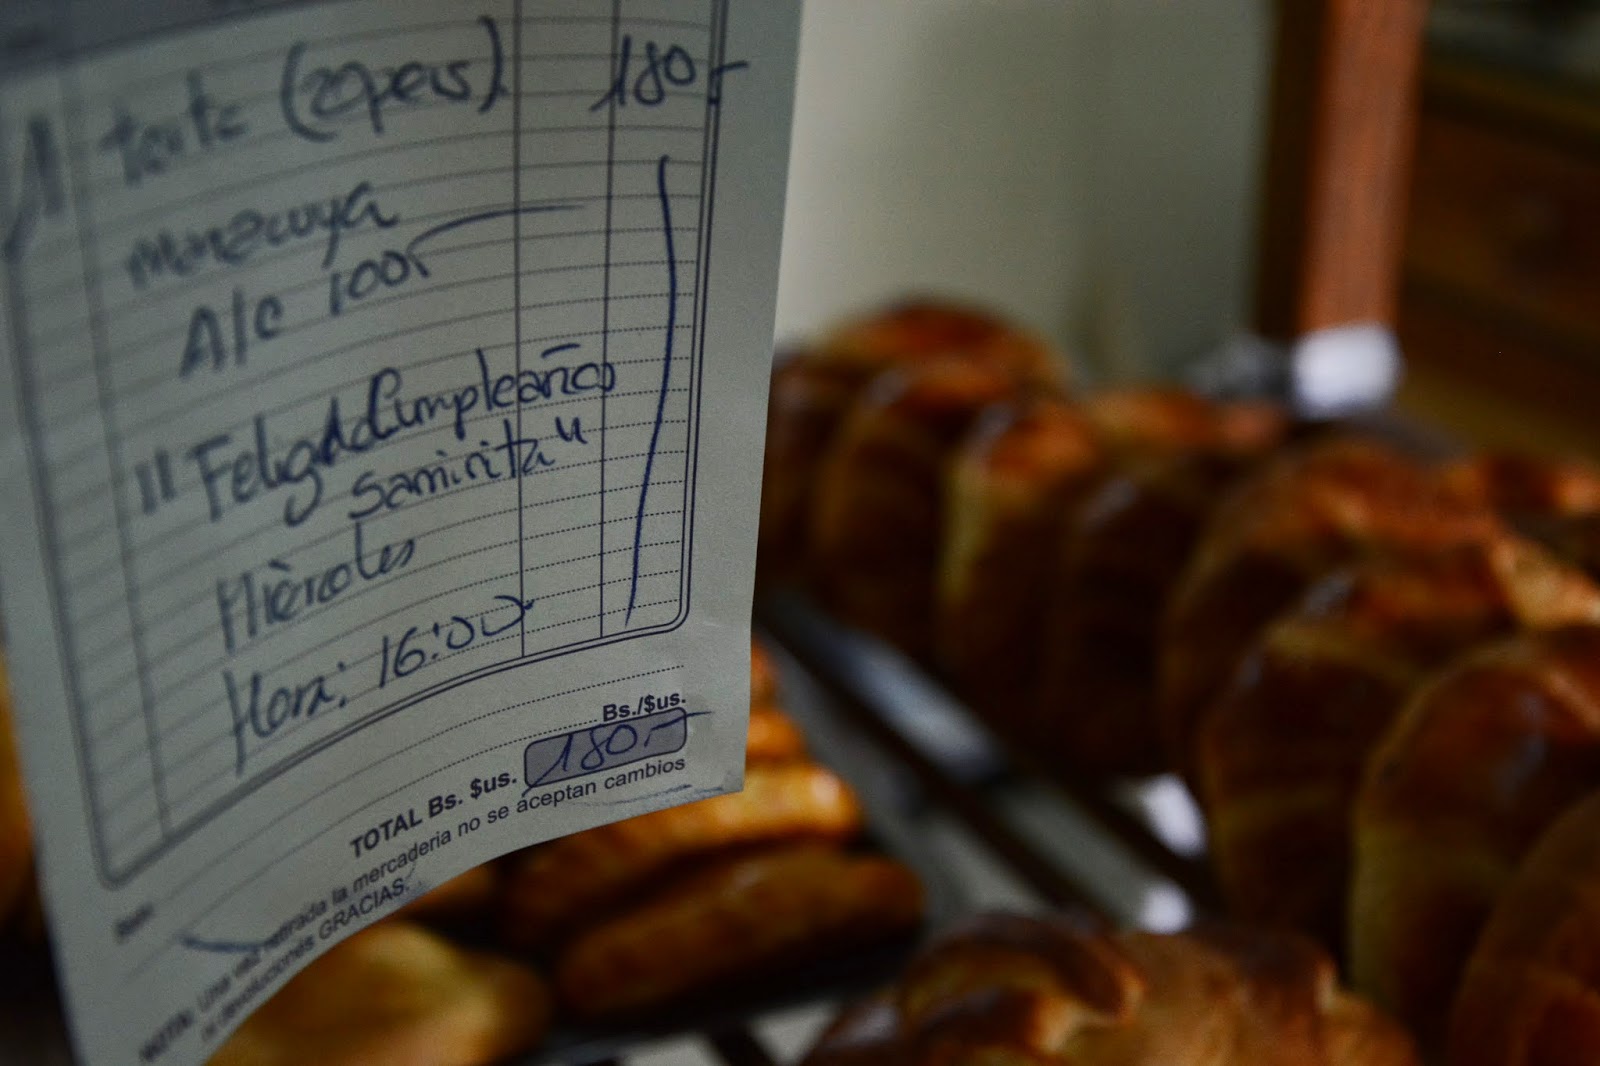 1 Torta (20pers) 180.-
maracuya
A/c 100.-
"Feliz Cumpleaños
Samirita"
Miércoles
Hora: 16:00
Bs./$us.
TOTAL Bs. $us. 180.-
NOTA: Una vez retirada la mercaderia no se aceptan cambios
ni devoluciones GRACIAS.